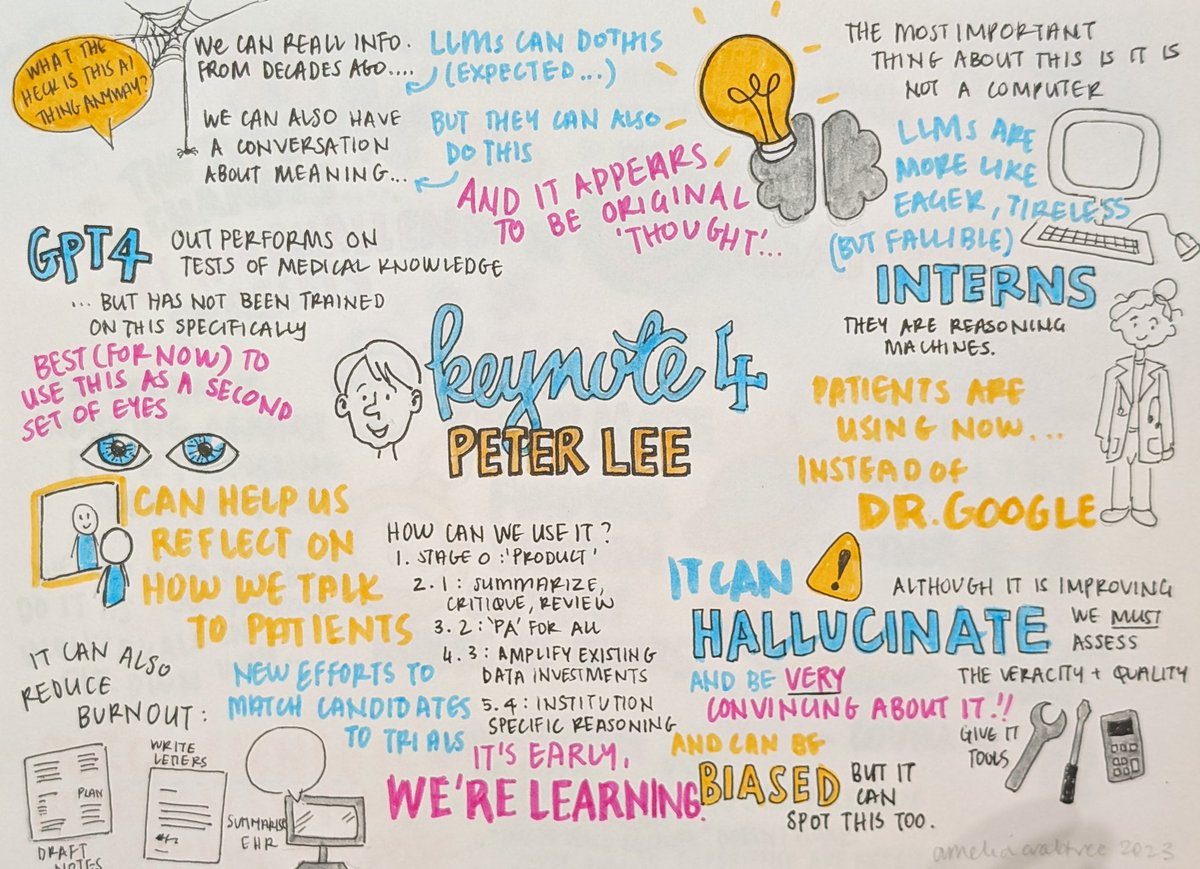 WHAT THE
HECK IS THIS AI
THING ANYWAY?
WE CAN REALL INFO.
FROM DECADES AGO....
LLMs CAN DO THIS
(EXPECTED...)
WE CAN ALSO HAVE
A CONVERSATION
ABOUT MEANING...
BUT THEY CAN ALSO
DO THIS
AND IT APPEARS
TO BE ORIGINAL
'THOUGHT'...
THE MOST IMPORTANT
THING ABOUT THIS IS IT IS
NOT A COMPUTER
LLMs ARE
MORE LIKE
EAGER, TIRELESS
(BUT FALLIBLE)
INTERNS
THEY ARE REASONING
MACHINES.
GPT4
OUT PERFORMS ON
TESTS OF MEDICAL KNOWLEDGE
... BUT HAS NOT BEEN TRAINED
ON THIS SPECIFICALLY
BEST (FOR NOW) TO
USE THIS AS A SECOND
SET OF EYES
keynote 4
PETER LEE
PATIENTS ARE
USING NOW...
INSTEAD OF
DR. GOOGLE
CAN HELP US
REFLECT ON
HOW WE TALK
TO PATIENTS
HOW CAN WE USE IT?
1. STAGE 0: 'PRODUCT'
2. 1: SUMMARIZE,
CRITIQUE, REVIEW
3. 2: 'PA' FOR ALL
4. 3: AMPLIFY EXISTING
DATA INVESTMENTS
5. 4: INSTITUTION
SPECIFIC REASONING
IT CAN
!
HALLUCINATE
AND BE VERY
CONVINCING ABOUT IT.!!
ALTHOUGH IT IS IMPROVING
WE MUST
ASSESS
THE VERACITY + QUALITY
GIVE IT
TOOLS
AND CAN BE
BIASED
BUT IT
CAN
SPOT THIS TOO.
IT CAN ALSO
REDUCE
BURNOUT:
NEW EFFORTS TO
MATCH CANDIDATES
TO TRIALS
IT'S EARLY,
WE'RE LEARNING.
PLAN
DRAFT
NOTES
WRITE
LETTERS
SUMMARISE
EHR
amelia crabtree 2023